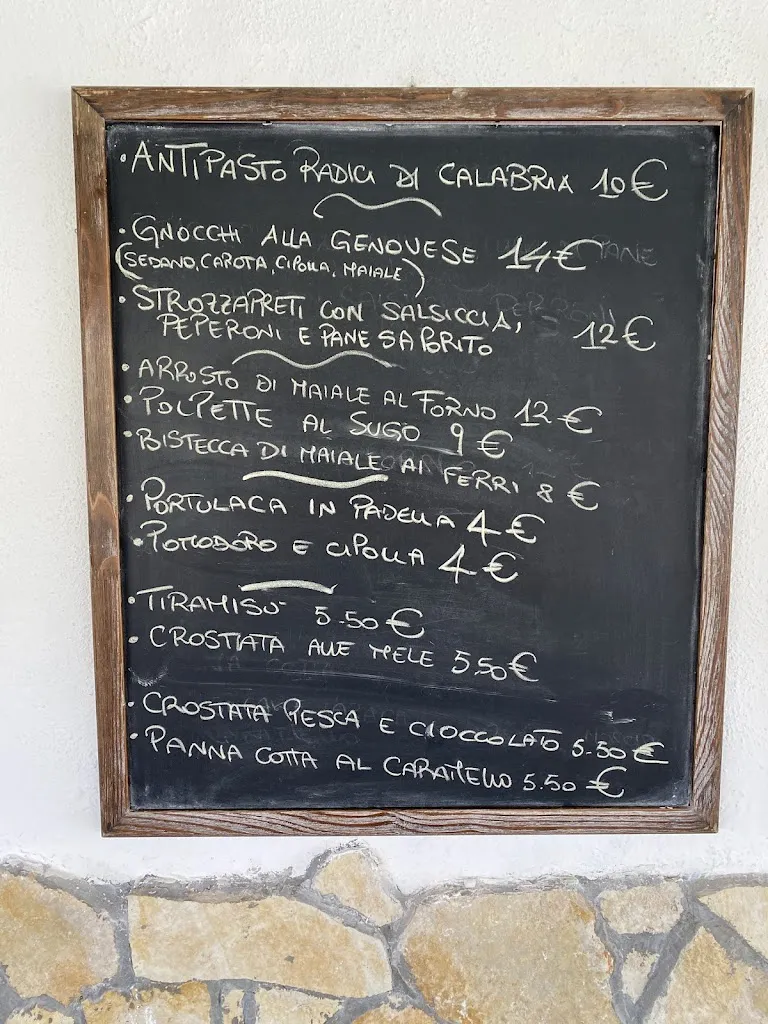 • ANTIPASTO RADICI DI CALABRIA 10€
• GNOCCHI ALLA GENOVESE 14€
(SEDANO, CAROTA, CIPOLLA, MAIALE)
• STROZZAPRETI CON SALSICCIA,
PEPERONI E PANE SAPORITO 12€
• ARROSTO DI MAIALE AL FORNO 12€
• POLPETTE AL SUGO 9€
• BISTECCA DI MAIALE AI FERRI 8€
• PORTULACA IN PADELLA 4€
• POMODORO E CIPOLLA 4€
• TIRAMISÙ 5.50€
• CROSTATA ALLE MELE 5.50€
• CROSTATA PESCA E CIOCCOLATO 5.50€
• PANNA COTTA AL CARAMELLO 5.50€